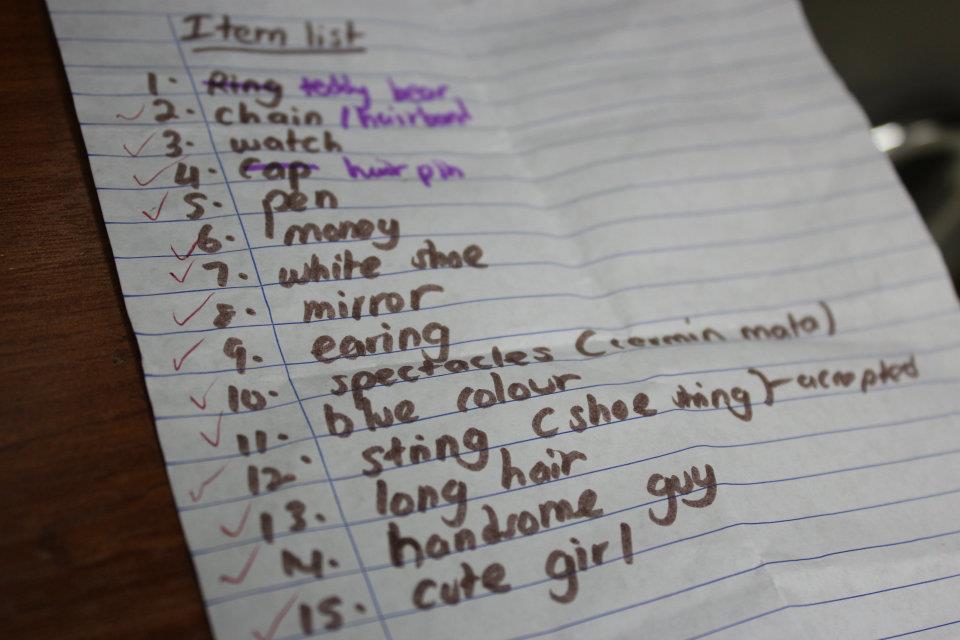 Item list
1. Ring teddy bear
2. chain / hairband
3. watch
4. Cap hair pin
5. pen
6. money
7. white shoe
8. mirror
9. earing
10. spectacles (cermin mata)
11. blue colour
12. string (shoe string) - accepted
13. long hair
14. handsome guy
15. cute girl